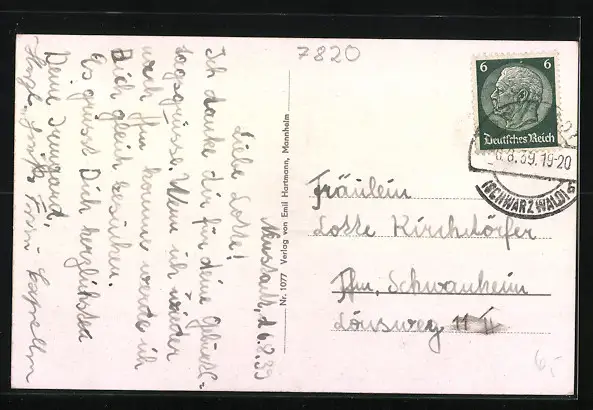 Neustadt, d. 6.8.39
Liebe Lotte!
Ich danke dir für deine Glückl-
tagsgrüsse. Wenn ich wieder
nach Ffm komme werde ich
Dich gleich besuchen.
Es grüsst Dich herzlichst
Deine Irmgard.
Herzl. Grüße
Nr. 1077 Verlag von Emil Hartmann, Mannheim
7820
6 6
Deutsches Reich
6.8.39.19-20
(SCHWARZWALD)
Fräulein
Lotte Kirchdörfer
Ffm. Schwanheim
Lönsweg 11
6,-